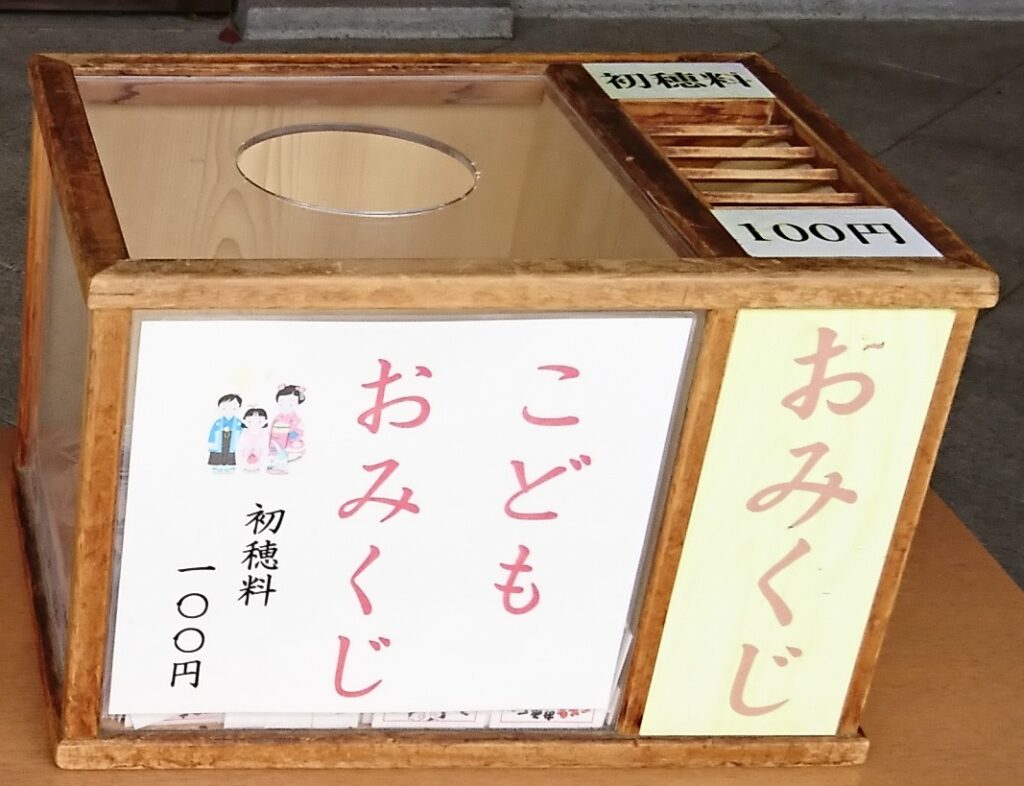 初穂料
100円
こども
おみくじ
初穂料
一〇〇円
おみくじ